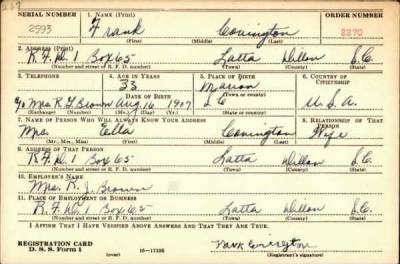 SERIAL NUMBER 1. NAME (Print) ORDER NUMBER
2593 Frank Covington 2270
(First) (Middle) (Last)
2. ADDRESS (Print)
R.F.D. 1 Box 65 Latta Dillon S.C.
(Number and street or R. F. D. number) (Town) (County) (State)
3. TELEPHONE 4. AGE IN YEARS 5. PLACE OF BIRTH 6. COUNTRY OF CITIZENSHIP
33 Marion
DATE OF BIRTH (Town or county)
c/o Mrs R. J. Brown Aug. 16 1907 S C U.S.A.
(Exchange) (Number) (Mo.) (Day) (Yr.) (State or country)
7. NAME OF PERSON WHO WILL ALWAYS KNOW YOUR ADDRESS 8. RELATIONSHIP OF THAT PERSON
Mrs. Ella Covington Wife
(Mr., Mrs., Miss) (First) (Middle) (Last)
9. ADDRESS OF THAT PERSON
R.F.D. 1 Box 65 Latta Dillon S.C.
(Number and street or R. F. D. number) (Town) (County) (State)
10. EMPLOYER'S NAME
Mrs. R. J. Brown
11. PLACE OF EMPLOYMENT OR BUSINESS
R.F.D. 1 Box 65 Latta Dillon S.C.
(Number and street or R. F. D. number) (Town) (County) (State)
I AFFIRM THAT I HAVE VERIFIED ABOVE ANSWERS AND THAT THEY ARE TRUE.
REGISTRATION CARD
D. S. S. Form 1 16—17105 Frank Covington
(over) (Registrant's signature)